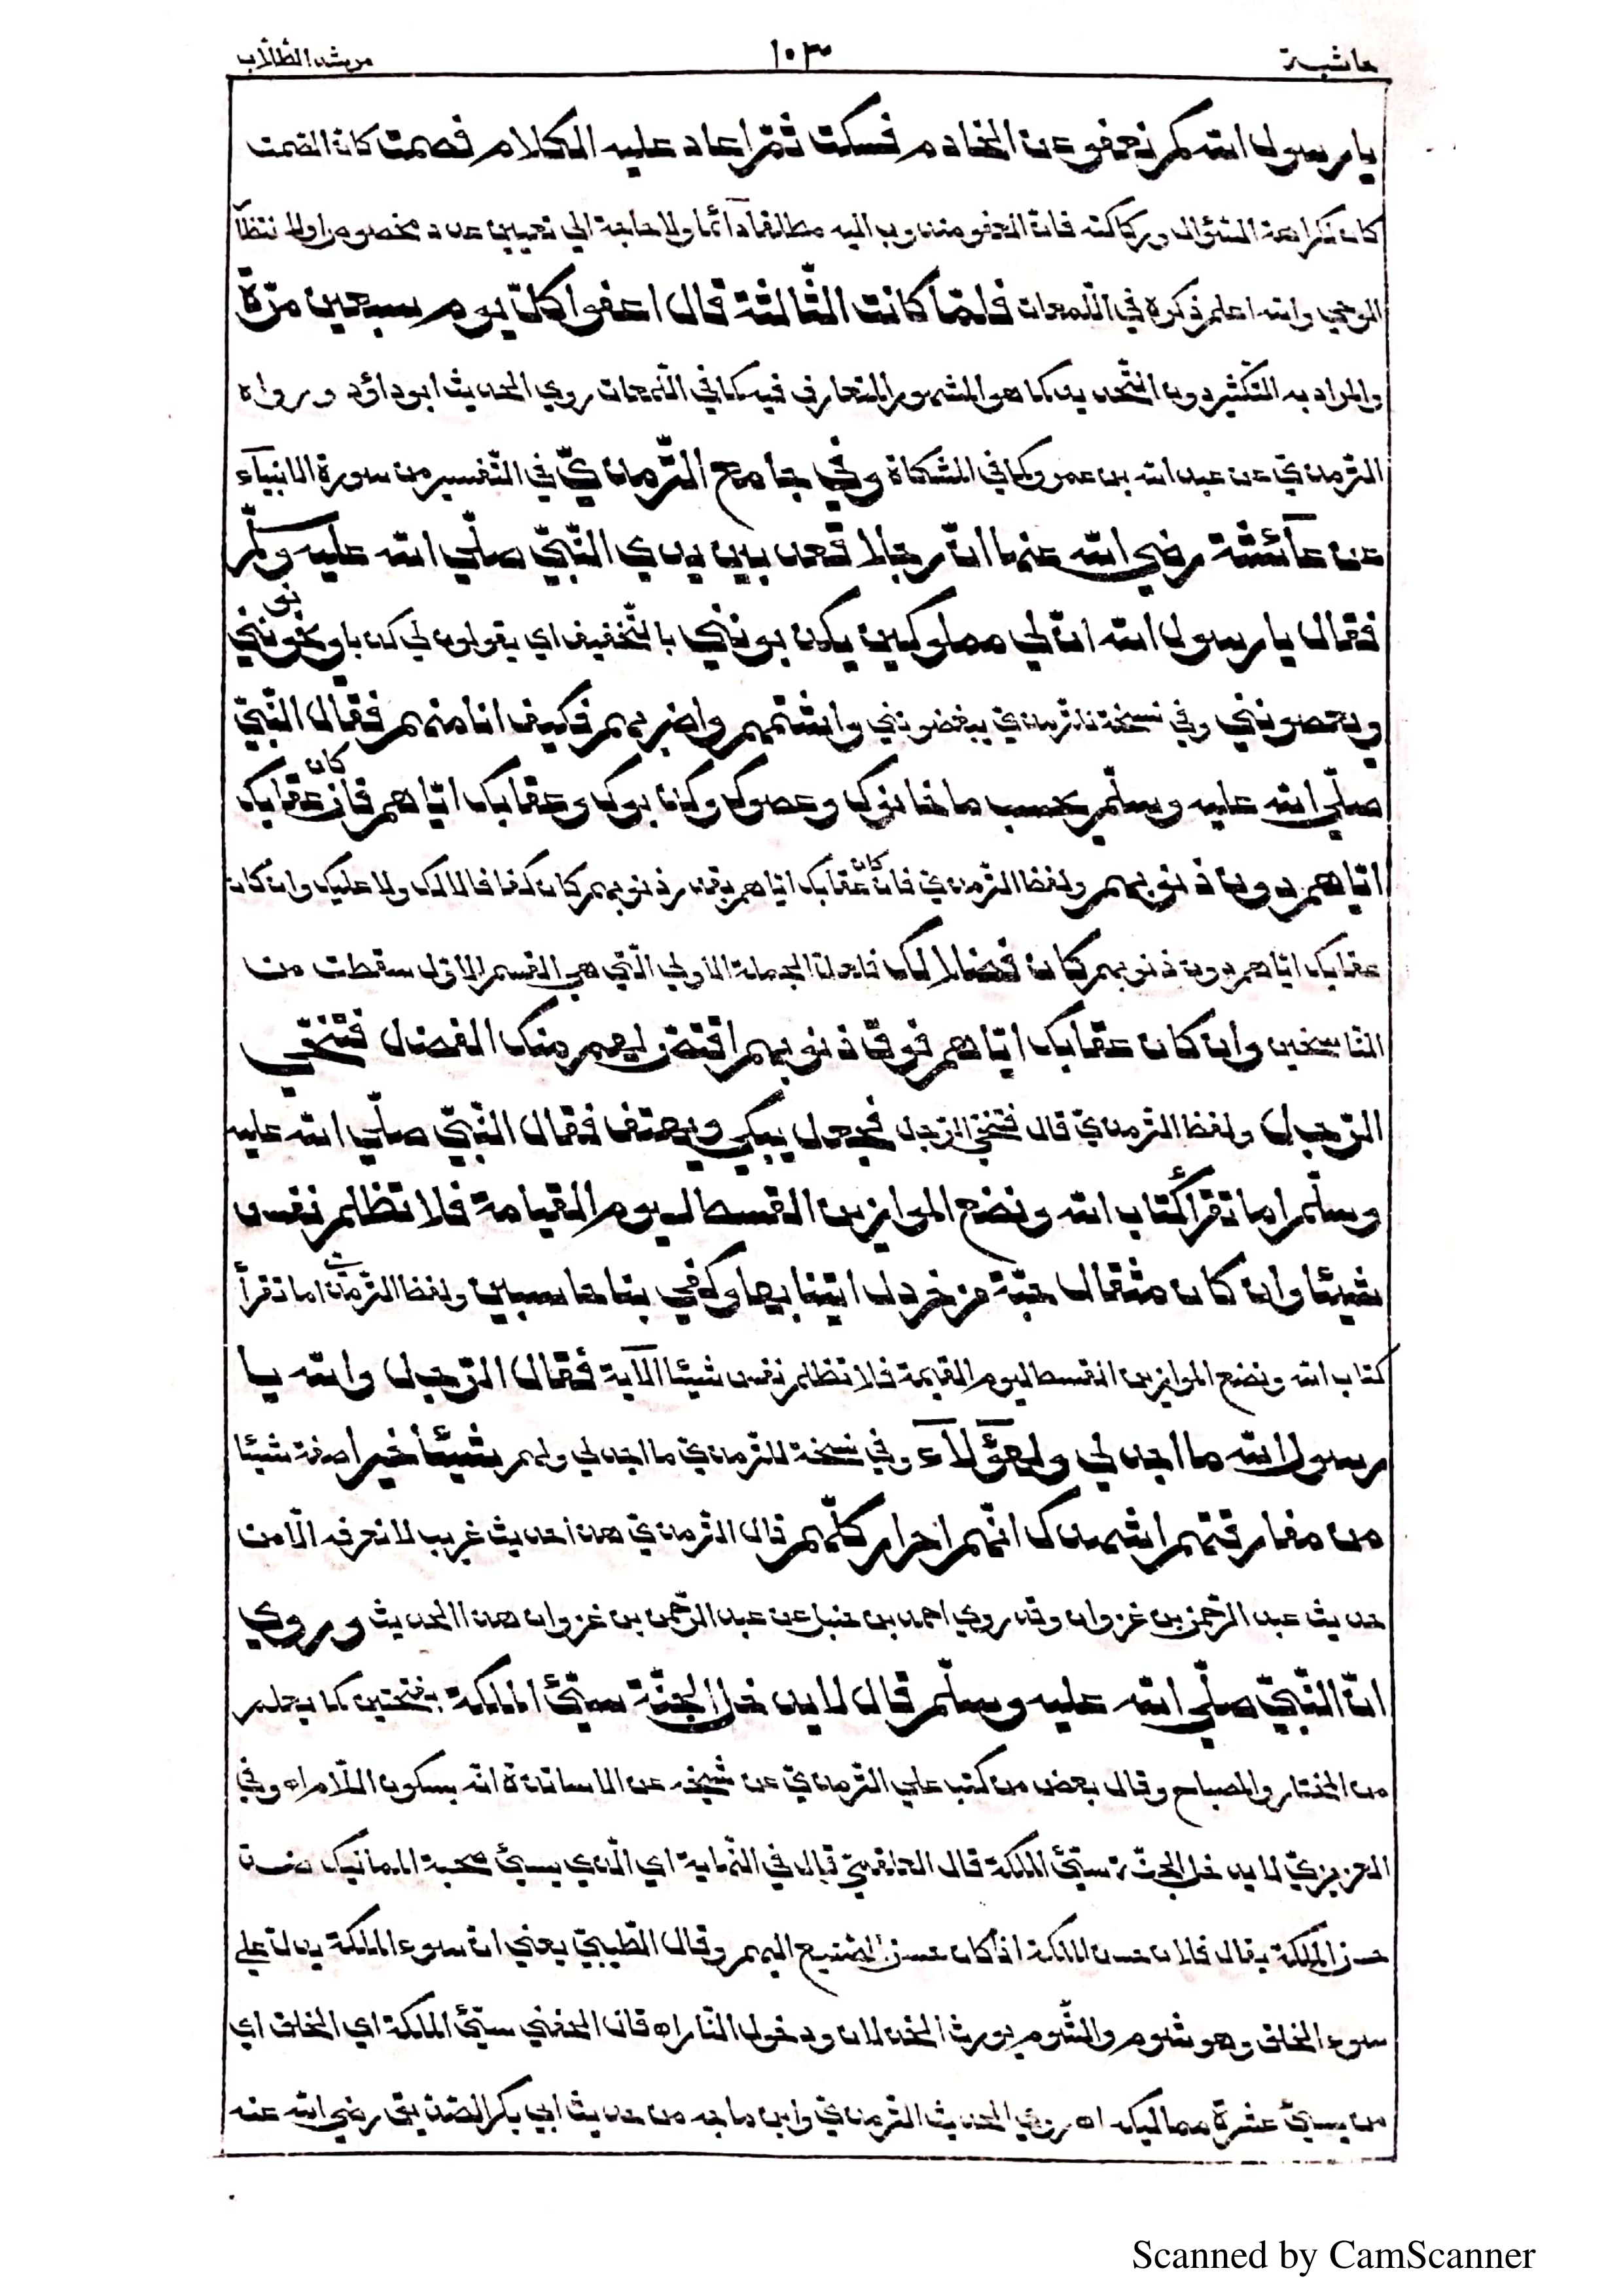 حاشية ١٠٣ مرشد الطّلّاب
يا رسول الله كم نعفو عن الخادم فسكت ثمّ اعاد عليه الكلام فصمت كانّ الصّمت
كان لكراهة السّؤال وركاكته فانّ العفو مندوب اليه مطلقا دآئما ولا حاجة الي تعيين عدد مخصوص او لانتظار
الوحي والله اعلم ذكره في اللّمعات فلمّا كانت الثّالثة قال اعفوا كلّ يوم سبعين مرّة
والمراد به التّكثير دون التّحديد كما هو المشهور المتعارف فيه كما في اللّمعات روي الحديث ابوداؤد ورواه
التّرمذيّ عن عبد الله بن عمرو كما في المشكاة وفي جامع التّرمذيّ في التّفسير من سورة الانبيآء
عن عآئشة رضي الله عنها انّ رجلا قعد بين يدي النّبيّ صلّي الله عليه وسلّم
فقال يا رسول الله انّ لي مملوكين يكذبونني بالتّخفيف اي يقولون لي كذبا ويخونونني
ويعصونني وفي نسخة للتّرمذيّ يبغضونني واشتمهم واضربهم فكيف انا منهم فقال النّبيّ
صلّي الله عليه وسلّم يحسب ما خانوك وعصوك وكذّبوك وعقابك ايّاهم فان كان عقابك
ايّاهم دون ذنوبهم ولفظ التّرمذيّ فان كان عقابك ايّاهم بقدر ذنوبهم كان كفافا لا لك ولا عليك وان كان
عقابك ايّاهم دون ذنوبهم كان فضلا لك فلعلّ الجملة الاولي الّتي هي القسم الاوّل سقطت من
النّاسخين وان كان عقابك ايّاهم فوق ذنوبهم اقتصّ لهم منك الفضل فتنحّي
الرّجل ولفظ التّرمذيّ قال فتنحّي الرّجل فجعل يبكي ويهتف فقال النّبيّ صلّي الله عليه
وسلّم اما تقرأ كتاب الله ونضع الموازين القسط ليوم القيامة فلا تظلم نفس
شيئا وان كان مثقال حبّة من خردل اتينا بها وكفي بنا حاسبين ولفظ التّرمذيّ اما تقرأ
كتاب الله ونضع الموازين القسط ليوم القيمة فلا تظلم نفس شيئا الآية فقال الرّجل والله يا
رسول الله ما اجد لي ولهؤلآء وفي نسخة للتّرمذيّ ما اجد لي ولهم شيئا خيرا صفة شيئا
من مفارقتهم اشهدك انّهم احرار كلّهم قال التّرمذيّ هذا حديث غريب لا نعرفه الّا من
حديث عبد الرّحمن بن غزوان وقد روي احمد بن حنبل عن عبد الرّحمن بن غزوان هذا الحديث وروي
انّ النّبيّ صلّي الله عليه وسلّم قال لا يدخل الجنّة سيّئ الملكة بفتحتين كما يعلم
من المختار والمصباح وقال بعض من كتب علي التّرمذيّ عن شيخه عن الاساتذة انّه بسكون اللّام اه وفي
العزيزيّ لا يدخل الجنّة سيّئ الملكة قال العلقميّ قال في النّهاية اي الّذي يسيئ صحبة المماليك
حسن الملكة يقال فلان حسن الملكة اذا كان حسن الصّنيع اليهم وقال الطّيبيّ يعني انّ سوء الملكة يدلّ علي
سوء الخلق وهو شوم والشّوم يورث الخذلان ودخول النّار اه قال الحفنيّ سيّئ الملكة اي الخلق اي
من يسيئ عشرة مماليكه اه روي الحديث التّرمذيّ وابن ماجه من حديث ابي بكر الصّدّيق رضي الله عنه
Scanned by CamScanner